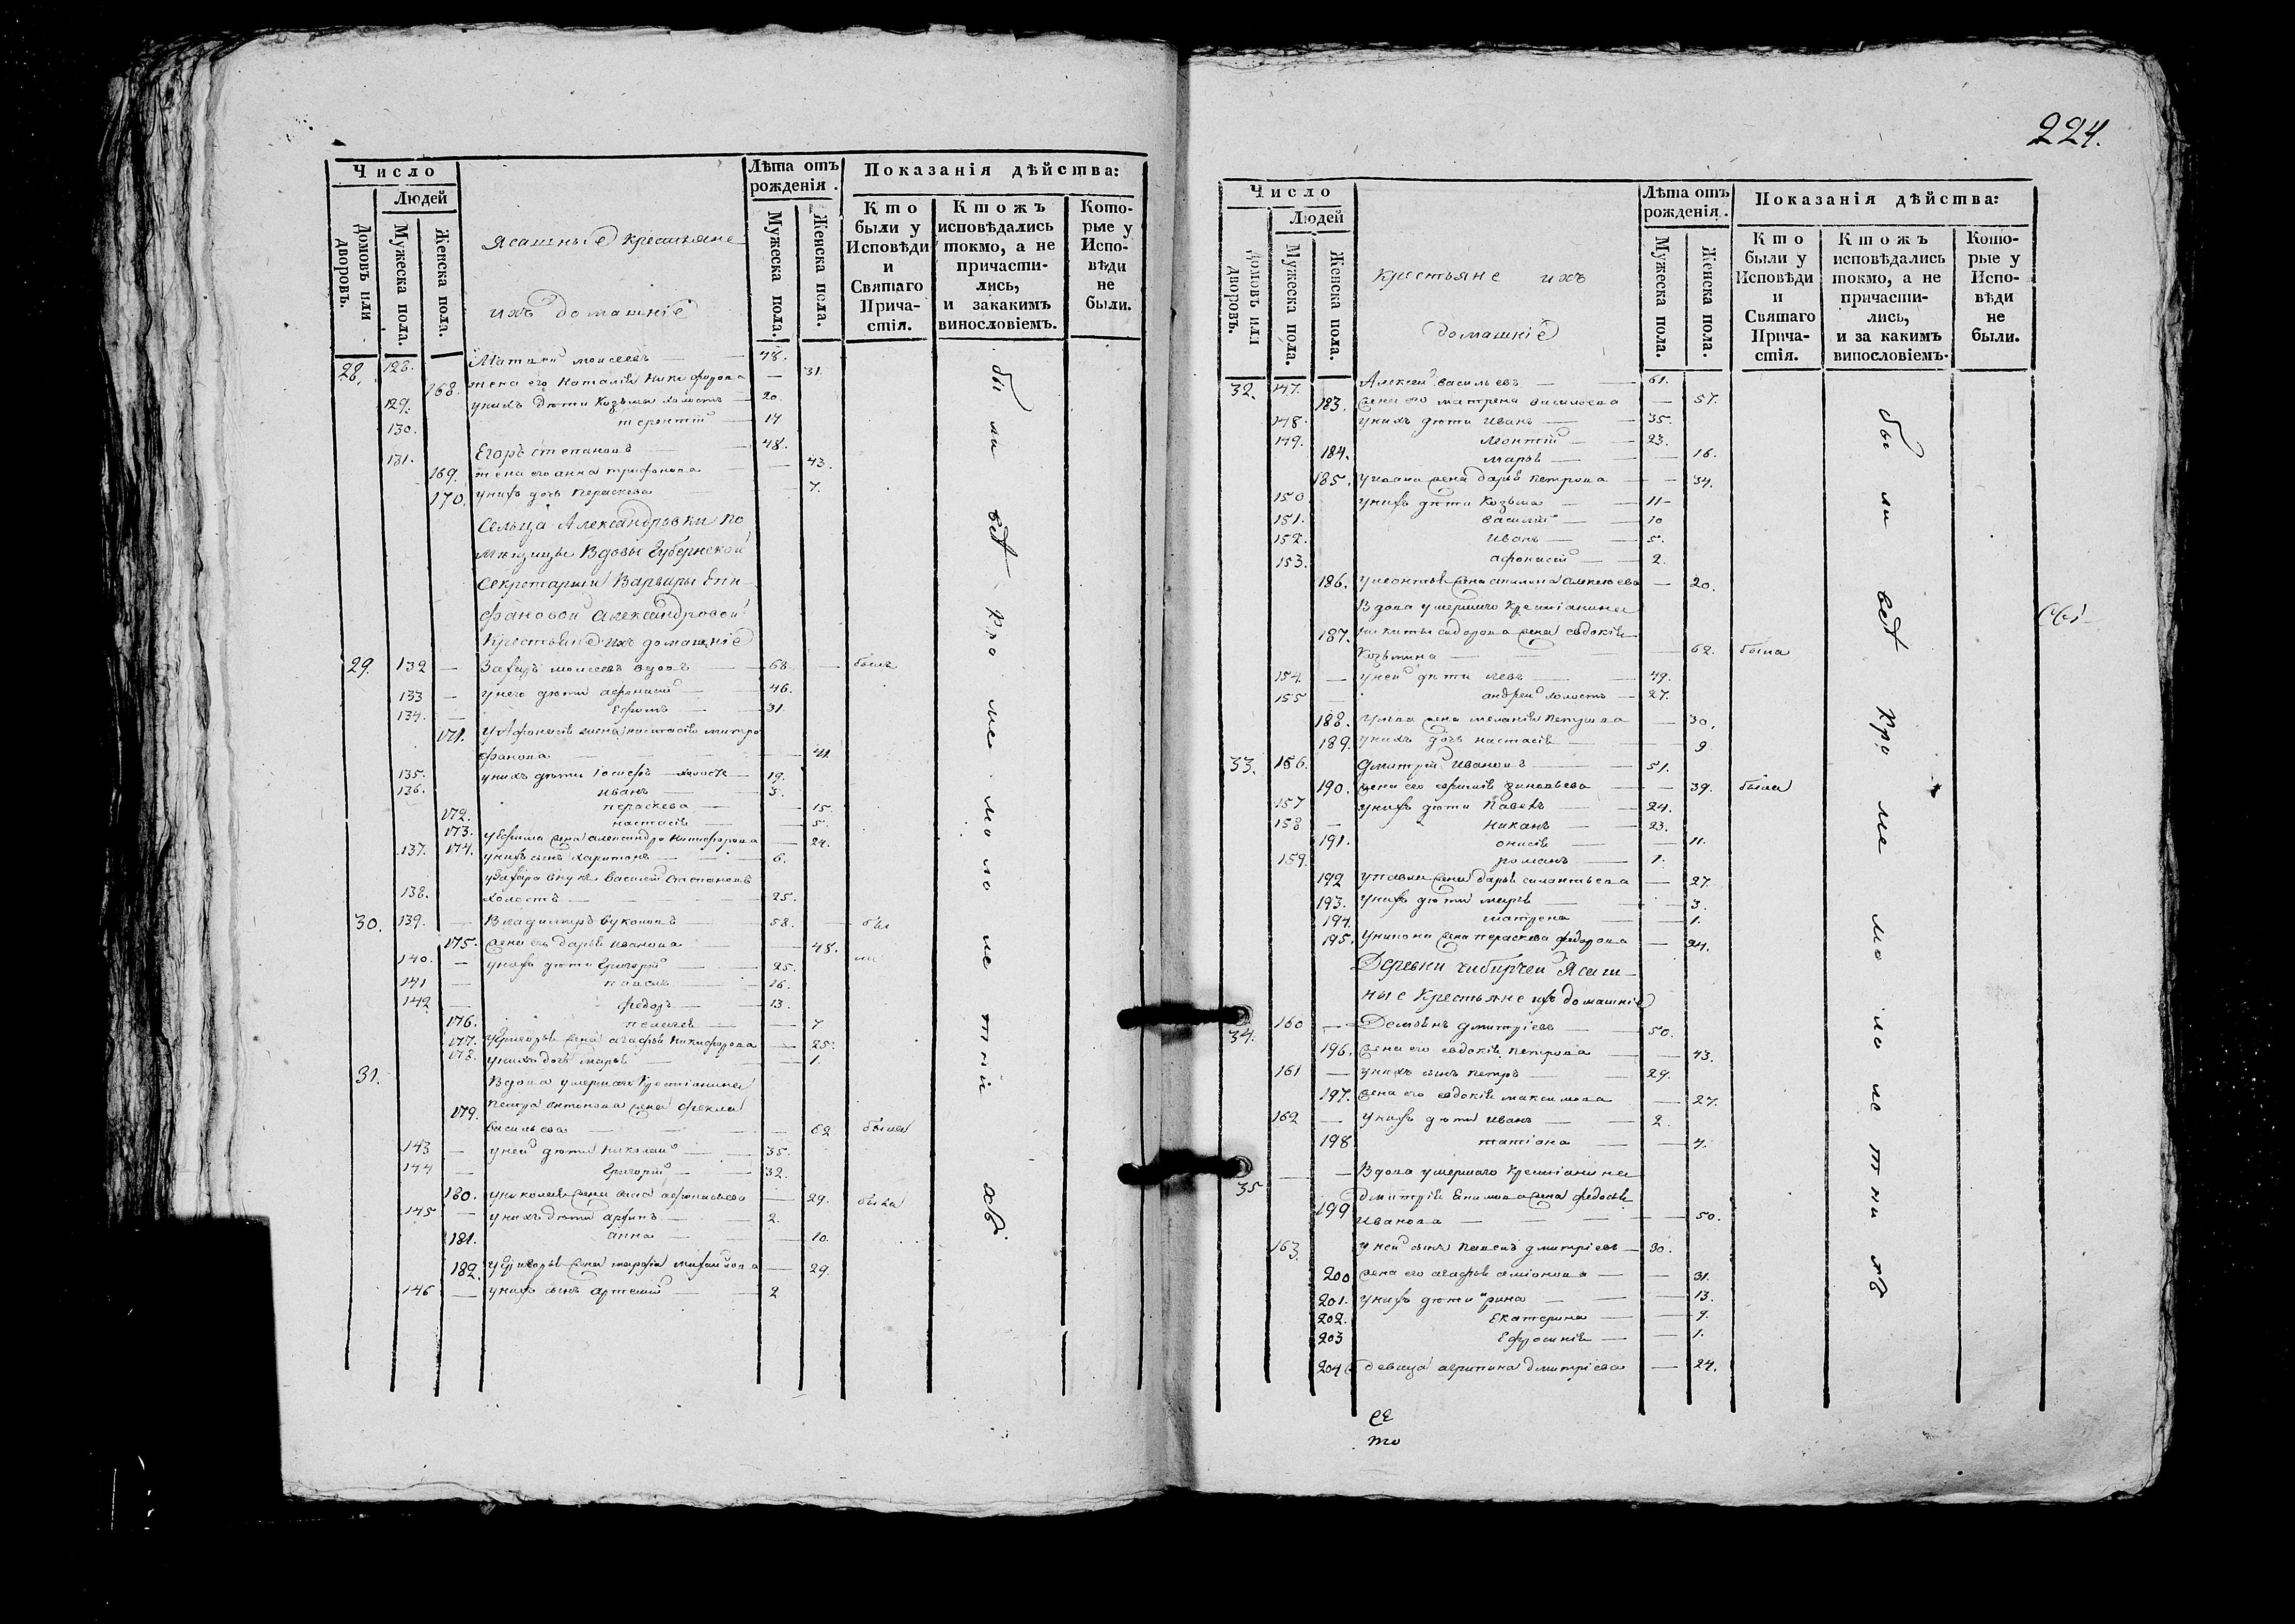 Число
Людей
Домовъ или дворовъ.
Мужеска пола.
Женска пола.
ясашные крестьяне
ихъ домашніе
Лѣта отъ рожденія.
Мужеска пола.
Женска пола.
Показанія дѣйства:
Кто были у Исповѣди и Святаго Причастія.
Ктожъ исповѣдались токмо, а не причастились, и закакимъ винословіемъ.
Которые у Исповѣди не были.
28. 128. моисеевъ — 48.
168. жена его Наталія Никифорова — 31.
129. унихъ дѣти Козьма холостъ — 20.
130. терентій — 14
131. Егоръ степановъ — 48.
169. жена его анна трифонова — 43.
170. унихъ дочь Параскева — 7.
Сельца Александровки по
мѣщицы Вдовы Губернской
Секретарши Варвары Епи
фановой Александровой
Крестьяне ихъ домашніе
29. 132 — Захаръ моисеевъ вдовъ — 68. — былъ
133 — унего дѣти афонасій — 46.
134. — Ефимъ — 31.
171. У Афонасія жена настасія митро
фанова — 41.
135. унихъ дѣти Іосифъ — холостъ — 19.
136. иванъ — 3.
172. параскева — 15.
173. настасія — 5.
174. уЕфима жена александра никифорова — 24.
137. унихъ сынъ харитонъ — 6.
уЗахара внукъ василей степановъ
138. холостъ — 25.
30. 139. — Владимиръ вуколовъ — 58. — бы
175. жена его дарья иванова — 48. ли
140. — унихъ дѣти Григорій — 25.
141 — павелъ — 16.
142 — федоръ — 13.
176. пелагея — 7
177. уГригорья жена агафья никифорова — 25.
178. унихъ дочь марья — 1.
31. Вдова умершаго Крестіанина
179. петра антонова жена фекла
васильева — 62 была
143 — уней дѣти николай — 35.
144 — Григорій — 32.
180. униколая жена афонасьева — 29. была
145 — унихъ дѣти — 2.
181. анна — 10.
182. уГригорья жена марфа михайлова — 29.
146 — унихъ сынъ артемій — 2
были всѣ кроме малолетныхъ
224.
Число
Людей
Домовъ или дворовъ.
Мужеска пола.
Женска пола.
крестьяне ихъ
домашніе
Лѣта отъ рожденія.
Мужеска пола.
Женска пола.
Показанія дѣйства:
Кто были у Исповѣди и Святаго Причастія.
Ктожъ исповѣдались токмо, а не причастились, и за какимъ винословіемъ.
Которые у Исповѣди не были.
32. 147. Алексей васильевъ — 61.
183. жена его матрена васильева — 57.
148. унихъ дѣти иванъ — 35.
149. леонтій — 23.
184. марья — 16.
185. уивана жена дарья петрова — 34.
150 унихъ дѣти Козьма — 11
151. василій — 10
152. иванъ — 5.
153. афонасій — 2.
186. улеонтья жена алексѣева — 20.
Вдова умершаго Крестіанина
187. никиты сидорова жена евдокія
козьмина — 62. была
154. — уней дѣти левъ — 49.
155 — андрей холостъ — 27.
188. ульва жена меланія петрова — 30.
189. унихъ дочь настасія — 9
33. 156. дмитрій ивановъ — 51.
190. жена его зиновьева — 39. была
157 унихъ дѣти Павелъ — 24.
158 — никонъ — 23.
191. — 11.
159. романъ — 1.
192 упавла жена дарья силантьева — 27.
193. унихъ дѣти марья — 3.
194. матрена — 1.
195. уникона жена параскева федорова — 24.
Деревни чибирчей Ясаш
ные Крестьяне ихъ домашніе
34. 160 — Демьянъ дмитріевъ — 50.
196. жена его евдокія петрова — 43.
161 — унихъ сынъ петръ — 29.
197. жена его евдокія максимова — 27.
162 — унихъ дѣти иванъ — 2.
198 татіана — 4.
35 — Вдова умершаго Крестіанина
дмитрія жена федосья
199 иванова — 50.
163. уней сынъ павелъ дмитріевъ — 30.
200 жена его агафья — 31.
201. унихъ дѣти ирина — 13.
202. Екатерина — 9.
203 Ефросинія — 1.
204 девица агрипина дмитріева — 24.
были всѣ кроме малолетныхъ